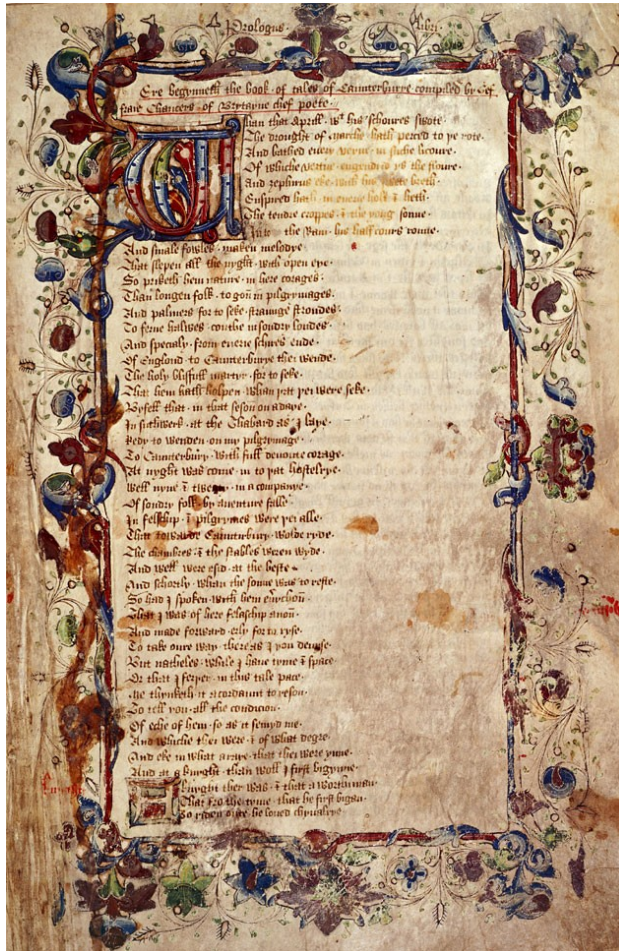 Prologus Libri
Ere begynneth the book of tales of Caunterburye compiled by Gef
fraie Chaucers of Brytayne chef poete
Whan that Aprill wt his schoures swote
The drought of Marche hath perced to ye rote
And bathed every veyne in suche licoure
Of whiche vertue engendrid ys the floure
And zephirus eke with his swete breth
Enspired hath in everie holt & heth
The tendre croppes & the yong sonne
In to the Ram his half cours ronne
And smale fowles maken melodye
That slepen all the nyght with open eye
So priketh hem nature in here corages
Than longen folk to gon in pilgrymages
And palmers for to seke straunge strondes
To ferne halwes couthe in sondry londes
And specialy from everie schires ende
Of Englond to Caunterburye thei wende
The holy blisfull martyr for to seke
That hem hath holpen whan þat þei were seke
Befell that in that seson on a daye
In suthwerk at the Thabard as I laye
Redy to wenden on my pilgrymage
To Caunterbury with full devoute corage
At nyght was come in to þat hostelrye
Well nyne & twenty in a companye
Of sondry folk by aventure falle
In felschip & pilgrymes were þei alle
That towarde Caunterbury wolde ryde
The chambres & the stables weren wyde
And well were esid at the beste
And schortly whan the sonne was to reste
So had I spoken with hem everychon
That I was of here felaschip anon
And made forward erly for to ryse
To take oure way there as I you devise
But natheles while I have tyme & space
Or that I ferþer in this tale pace
Me thynketh it acordaunt to reson
To tell you all the condicion
Of eche of hem so as it semyd me
And whiche thei were & of what degre
And eke in what araye that thei were ynne
And at a knyght than woll I first bigynne
A knyght ther was & that a worthi man
That fro the tyme that he first bigan
To riden oute he loved chyvalrye